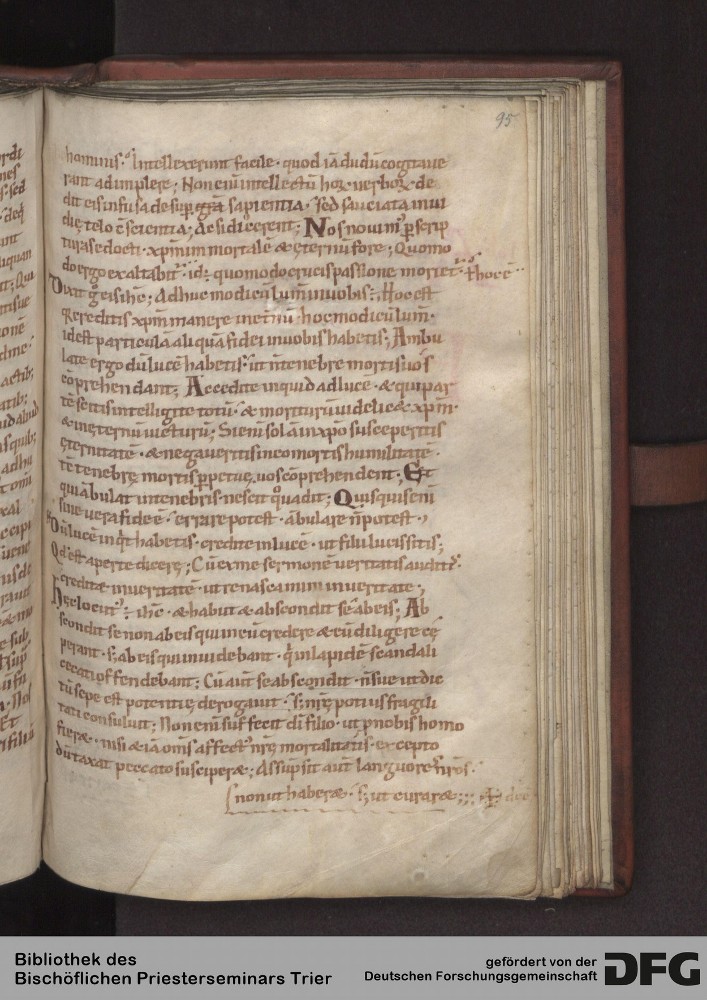 95
hominis. Intellexerunt facile. quod iā dudū cogitaue
rant adimplere; Non eni᷒ intellectū hoꝝ uerboꝝ de
dit eis infusa desuꝑ sapientia. sed sauciata inui
die telo c̄scientia; At si dicerent; Nos nouim᷒ ꝑ scrip
turas edocti. xp̄m inmortalē & eternū fore; Quomo
do ergo exaltabit᷒. id; quomodo crucis passione moriet᷒.
Dixit g̊ eis ih̄c; Adhuc modicū lum̄ in uobis; Hoc est
creditis xp̄m manere in et̄nū. hoc modicū lum̄.
id est particulā aliquā fidei in uobis habetis; Ambu
late ergo dū lucē habetis. ut n̄ tenebre mortis uos
cōprehendant; Accedite inquid ad lucē. & qui par
tē sentitis intelligite totū. & moriturū uidelic& xp̄m.
& in eternū uicturū; Si eni᷒ solā in xp̄o susceperitis
eternitatē. & negaueritis in eo mortis humilitatē.
tenebre mortis ꝑpetue uos cōprehendent; Et
qui ābulat in tenebris nescit quo uadit; Quisquis eni᷒
sine uera fide ē. errare potest. ābulare n̄ potest.
Dū lucē inq̇t habetis. credite in lucē. ut filii lucis sitis;
Qd̄ est aperte dicere; Cū ex me sermonē ueritatis auditis.
credite in ueritatē. ut renascamini in ueritate.
Hec locut᷒ ē ih̄c. & habiit & abscondit se ab eis; Ab
scondit se non ab eis qui in eū credere & eū diligere ce
perant. s; ab eis qui inuidebant. q̇ in lapidē scandali
cecati offendebant; Cū aut̄ se abscondit. n̄ sue ut dic
tū sepe est potentie derogauit. s; n̄re potius fragili
tati consuluit; Non eni᷒ suffecit dī filio. ut ꝓ nobis homo
fier&. nisi & iā om̄s affect᷒ n̄re mortalitatis. excepto
dū taxat peccato susciper&; Assūpsit aut̄ languores n̄ros.
non ut haber&. s; ut curar&;;;
Bibliothek des
Bischöflichen Priesterseminars Trier
gefördert von der
Deutschen Forschungsgemeinschaft
DFG